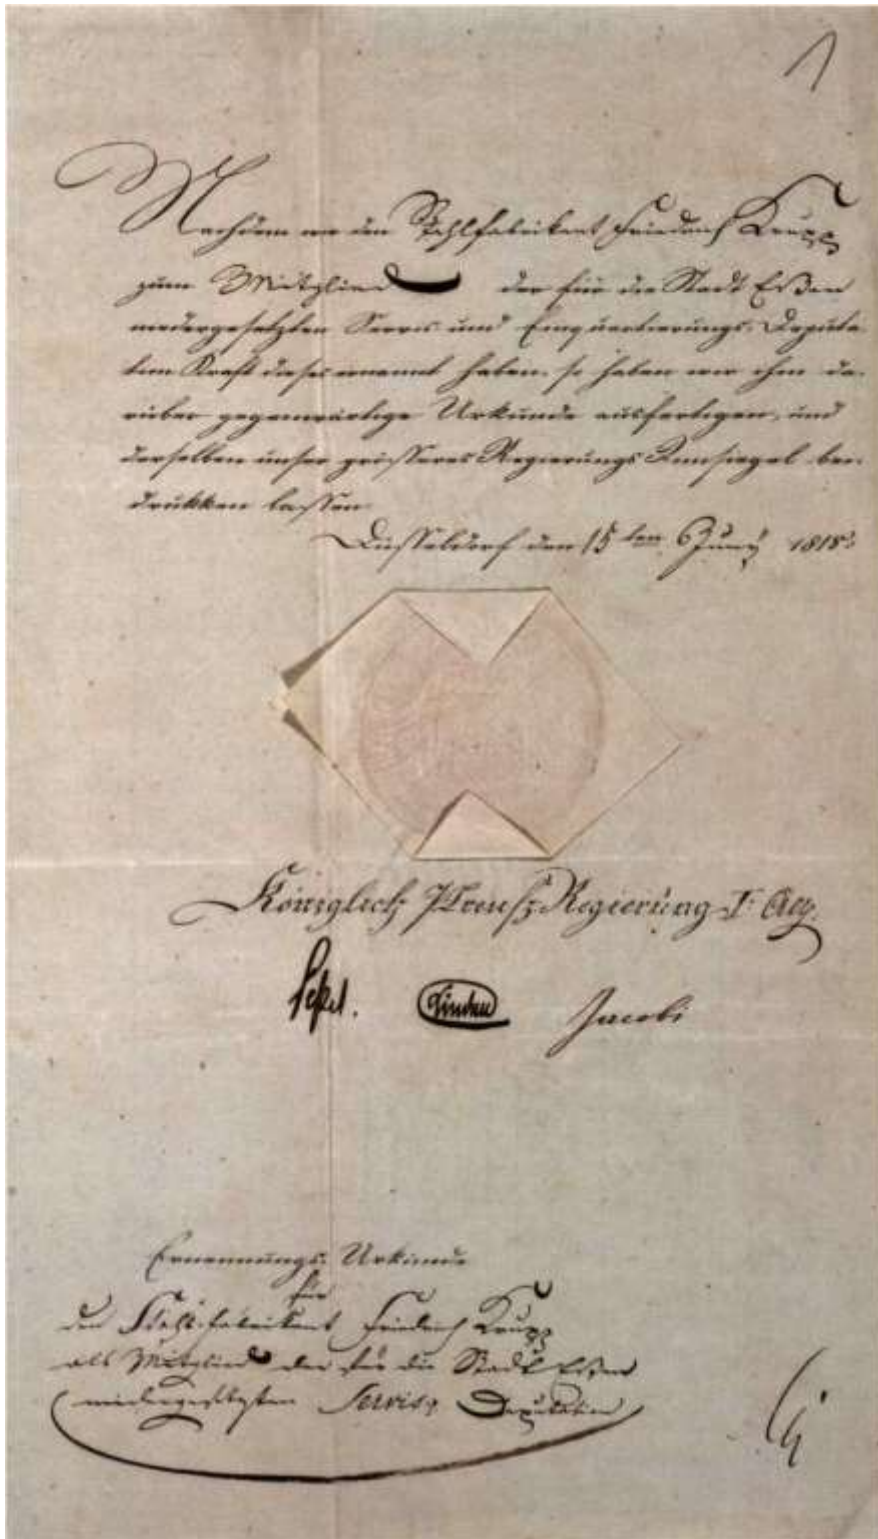 Nachdem wir den Stahlfabrikant Friedrich Krupp
zum Mitglied der für die Stadt Eßen
niedergesetzten Servis und Einquartierungs-Deputa-
tion Kraft dieses ernannt haben, so haben wir ihm da-
rüber gegenwärtige Urkunde ausfertigen, und
derselben unser größeres Regierungs Innsiegel bei-
drukken lassen.
Düsseldorf den 15ten Juny 1818.
Königlich Preuß. Regierung I
Jacobi
Ernennungs-Urkunde
für
den Stahlfabrikant Friedrich Krupp
als Mitglied der für die Stadt Eßen
niedergesetzten Servis Deputation